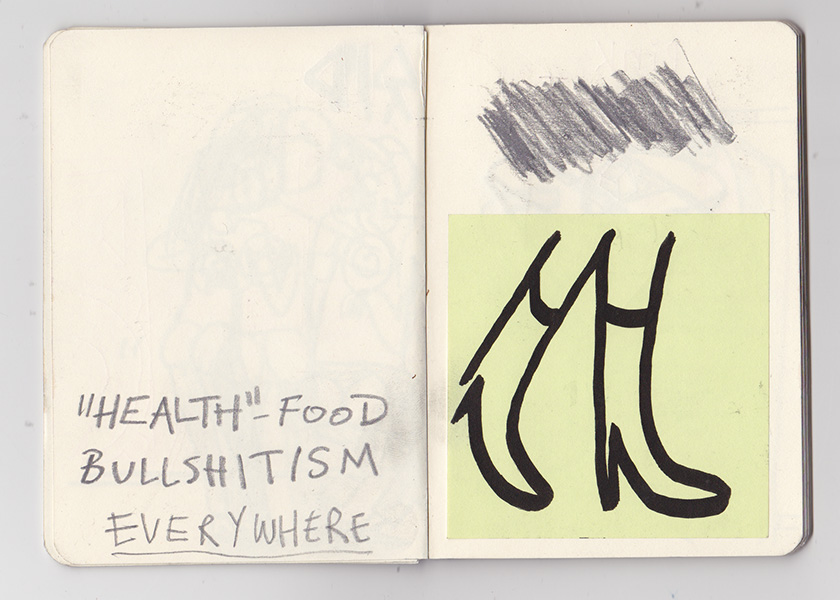 "HEALTH"-FOOD
BULLSHITISM
EVERYWHERE